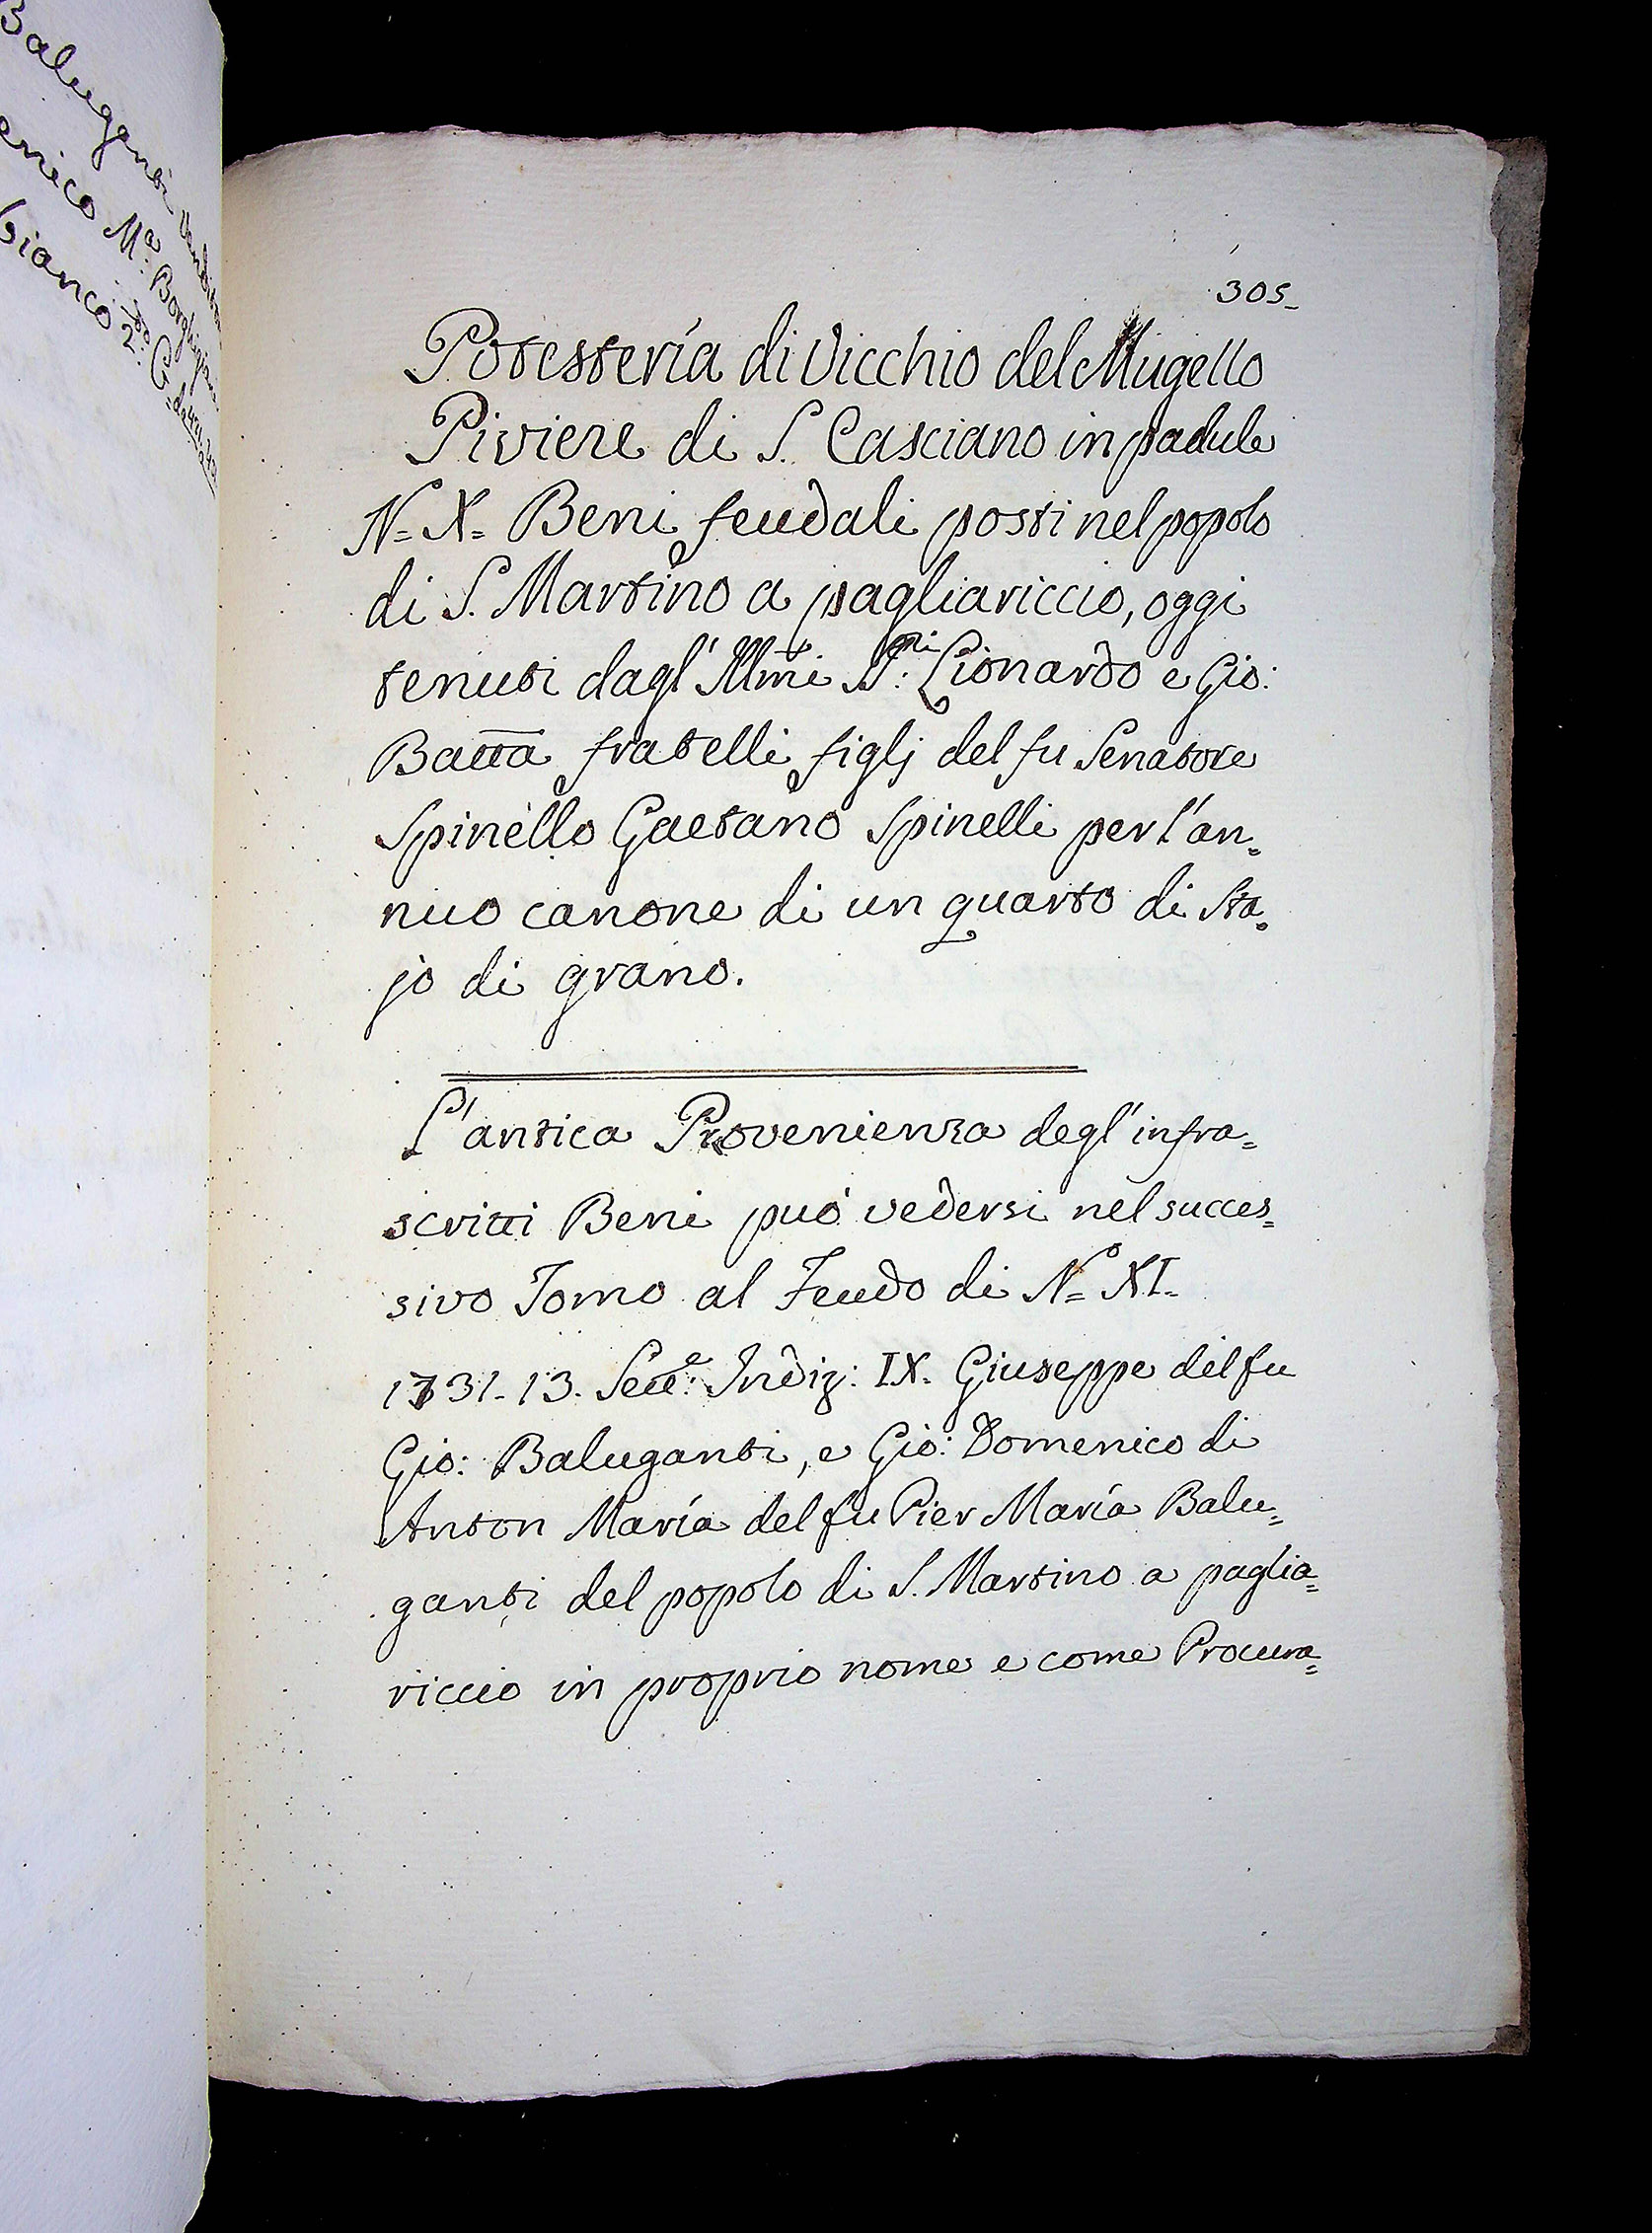 Baluganti
enico Mª: Borghigiani
bianco 2º:
305
Potesteria di Vicchio del Mugello
Piviere di S. Casciano in padule
Nº= X= Beni feudali posti nel popolo
di S. Martino a pagliariccio, oggi
tenuti dagl' Illmi SS:ri Lionardo e Gio:
Batta fratelli figlj del fu Senatore
Spinello Gaetano Spinelli per l'an=
nuo canone di un quarto di Sta=
jo di grano.
L'antica Provenienza degl' infra=
scritti Beni può vedersi nel succes=
sivo Tomo al Feudo di Nº= XI=
1731. 13. Sett:e Indiz: IX. Giuseppe del fu
Gio: Baluganti, e Gio: Domenico di
Anton María del fu Pier María Balu=
ganti del popolo di S. Martino a paglia=
riccio in proprio nome e come Procura=